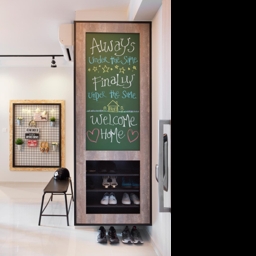 Always
Under the Same
Finally
Under the Same
Welcome
Home